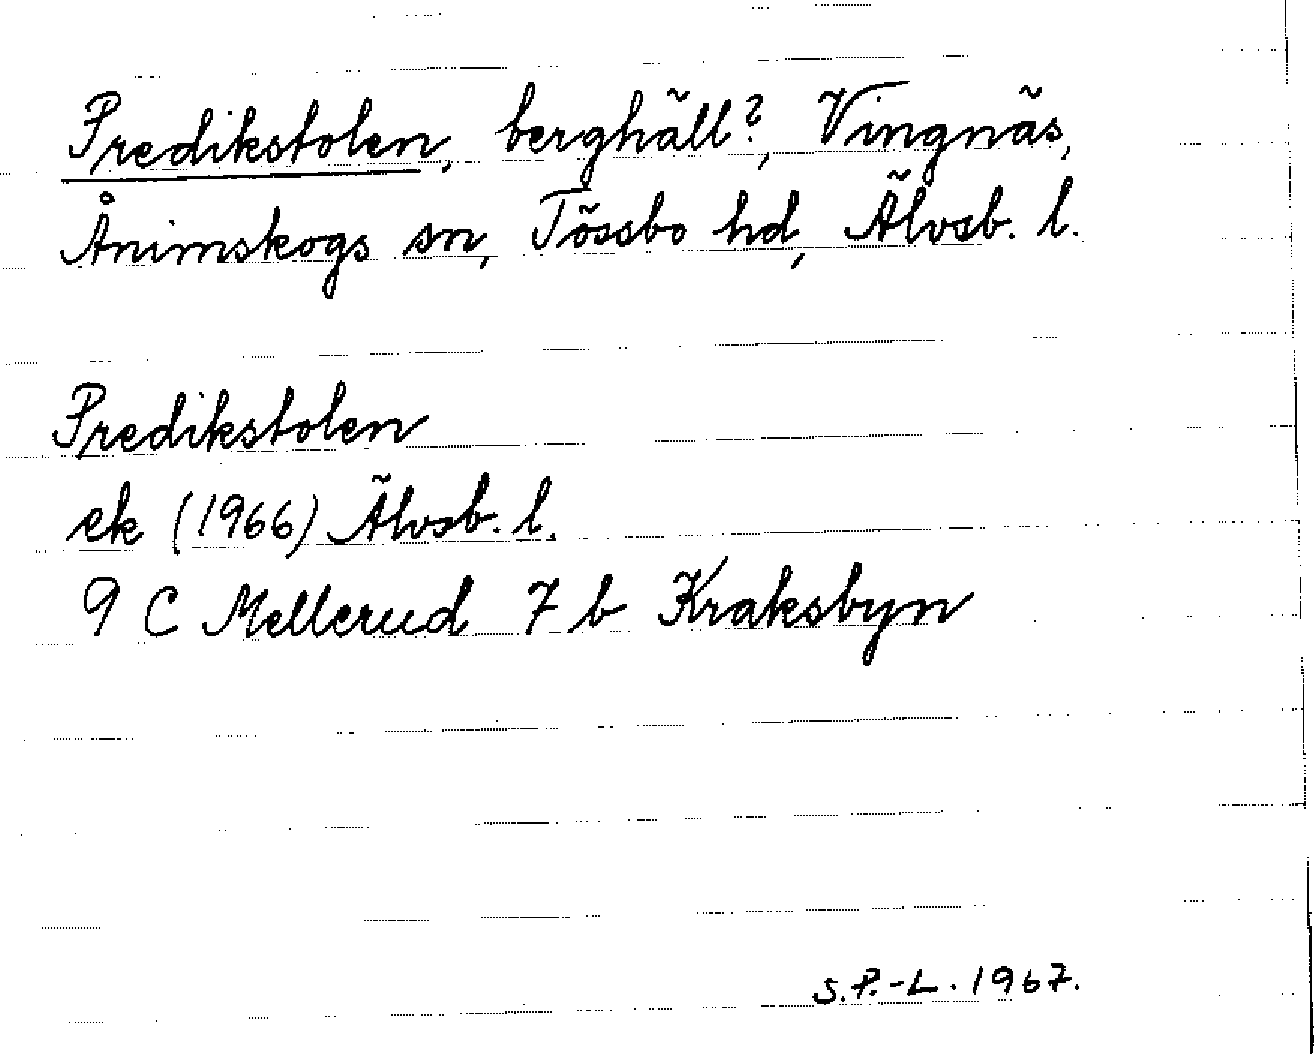 Predikstolen, berghäll?, Vingnäs,
Ånimskogs sn, Tössbo hd, Älvsb. l.
Predikstolen
ek (1966) Älvsb. l.
9 C Mellerud 7 b Kraksbyn
S.P.-L. 1967.